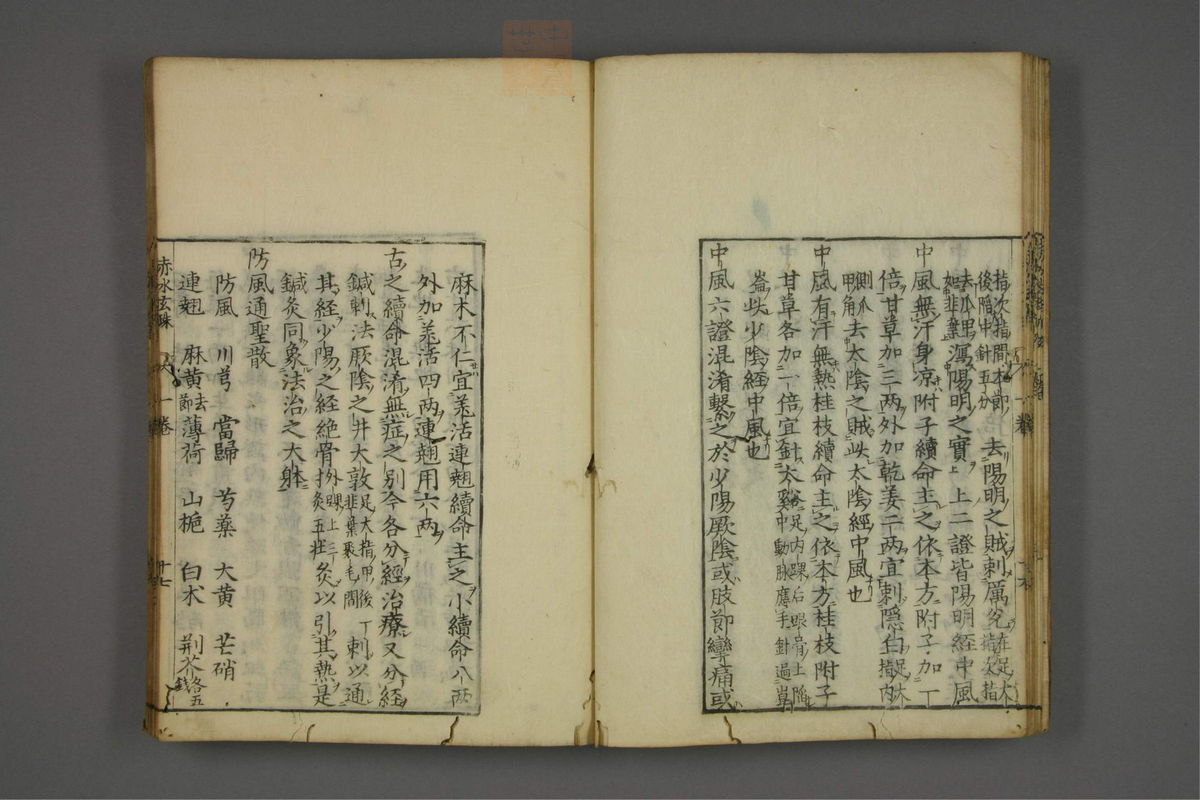 指次指間本節後陷中針五分去爪甲如韭葉去陽明之賊刺厲兌在足大指次指
瀉陽明之實上上二證皆陽明經中風
中風無汗身凉附子續命主之依本方附子加一
倍甘草加三兩外加乾姜二兩宜刺隱白足大指内
側爪甲角去太陰之賊此太陰經中風也
中風有汗無熱桂枝續命主之依本方桂枝附子
甘草各加一倍宜針太谿在足内踝后跟骨上陷中動脉應手針過崑
崙此少陰經中風也
中風六證混淆繋之於少陽厥陰或肢節攣痛或
麻木不仁宜羗活連翹續命主之小續命八兩
外加羗活四兩連翹用六兩
古之續命混淆無症之别今各分經治療又分經
鍼刺法厥陰之井大敦足大指甲後一韭葉聚毛間刺以通
其經少陽之經絶骨外踝上三寸灸五壯灸以引其熱是
鍼灸同象法治之大躰
防風通聖散
防風 川芎 當歸 芍藥 大黄 芒硝
連翹 麻黄去節 薄荷 山梔 白朮 荆芥各五錢
赤水玄珠 一卷 廿七